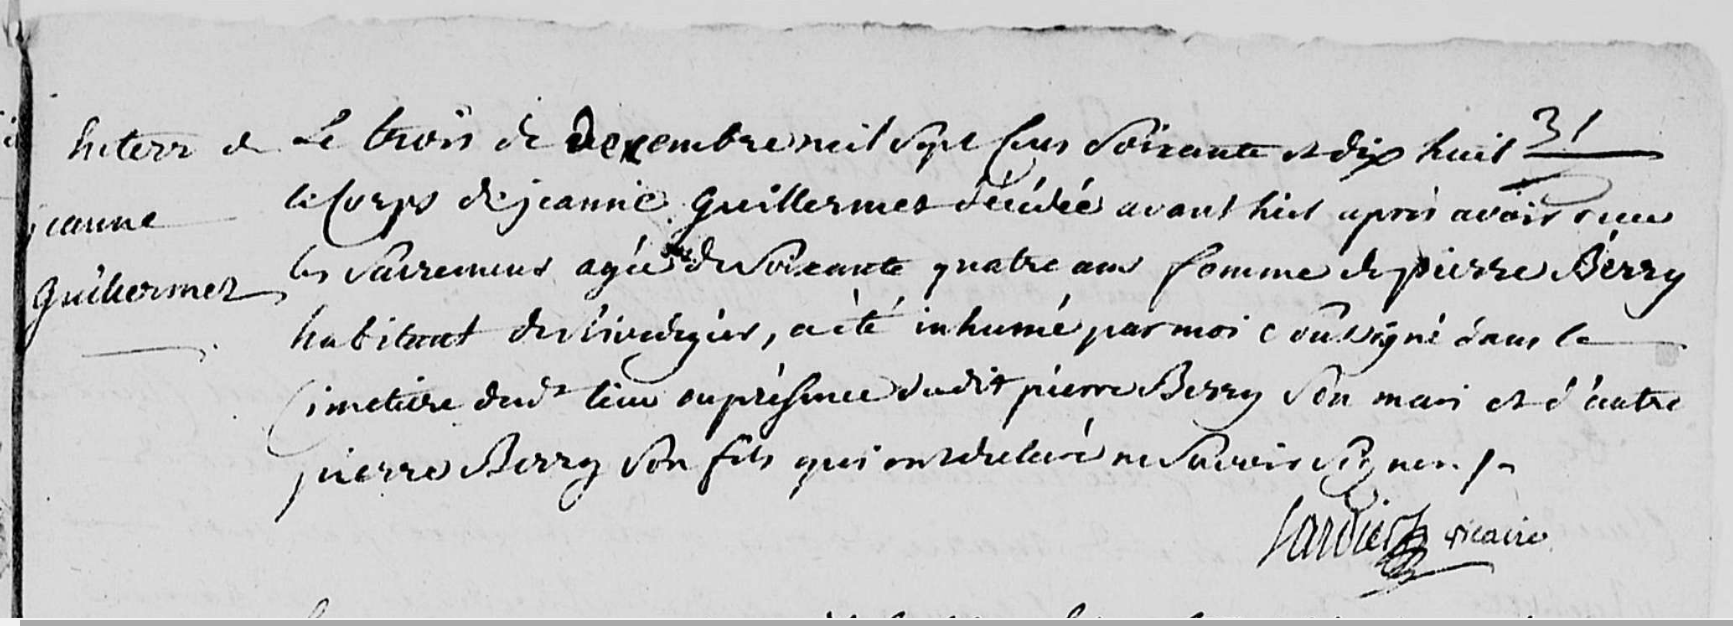 31
Enterr de
jeanne
Guillermet
Le trois de decembre mil sept cens soixante et dix huit
le corps de jeanne Guillermet décédée avant hier après avoir recu
les sacremens agée de soixante quatre ans femme de pierre Berry
habitant de, a été inhumé par moi soussigné dans le
cimetiere dud.t lieu en présence dudit pierre Berry son mari et d'autre
pierre Berry son fils qui ont déclaré ne savoir signer
vicaire